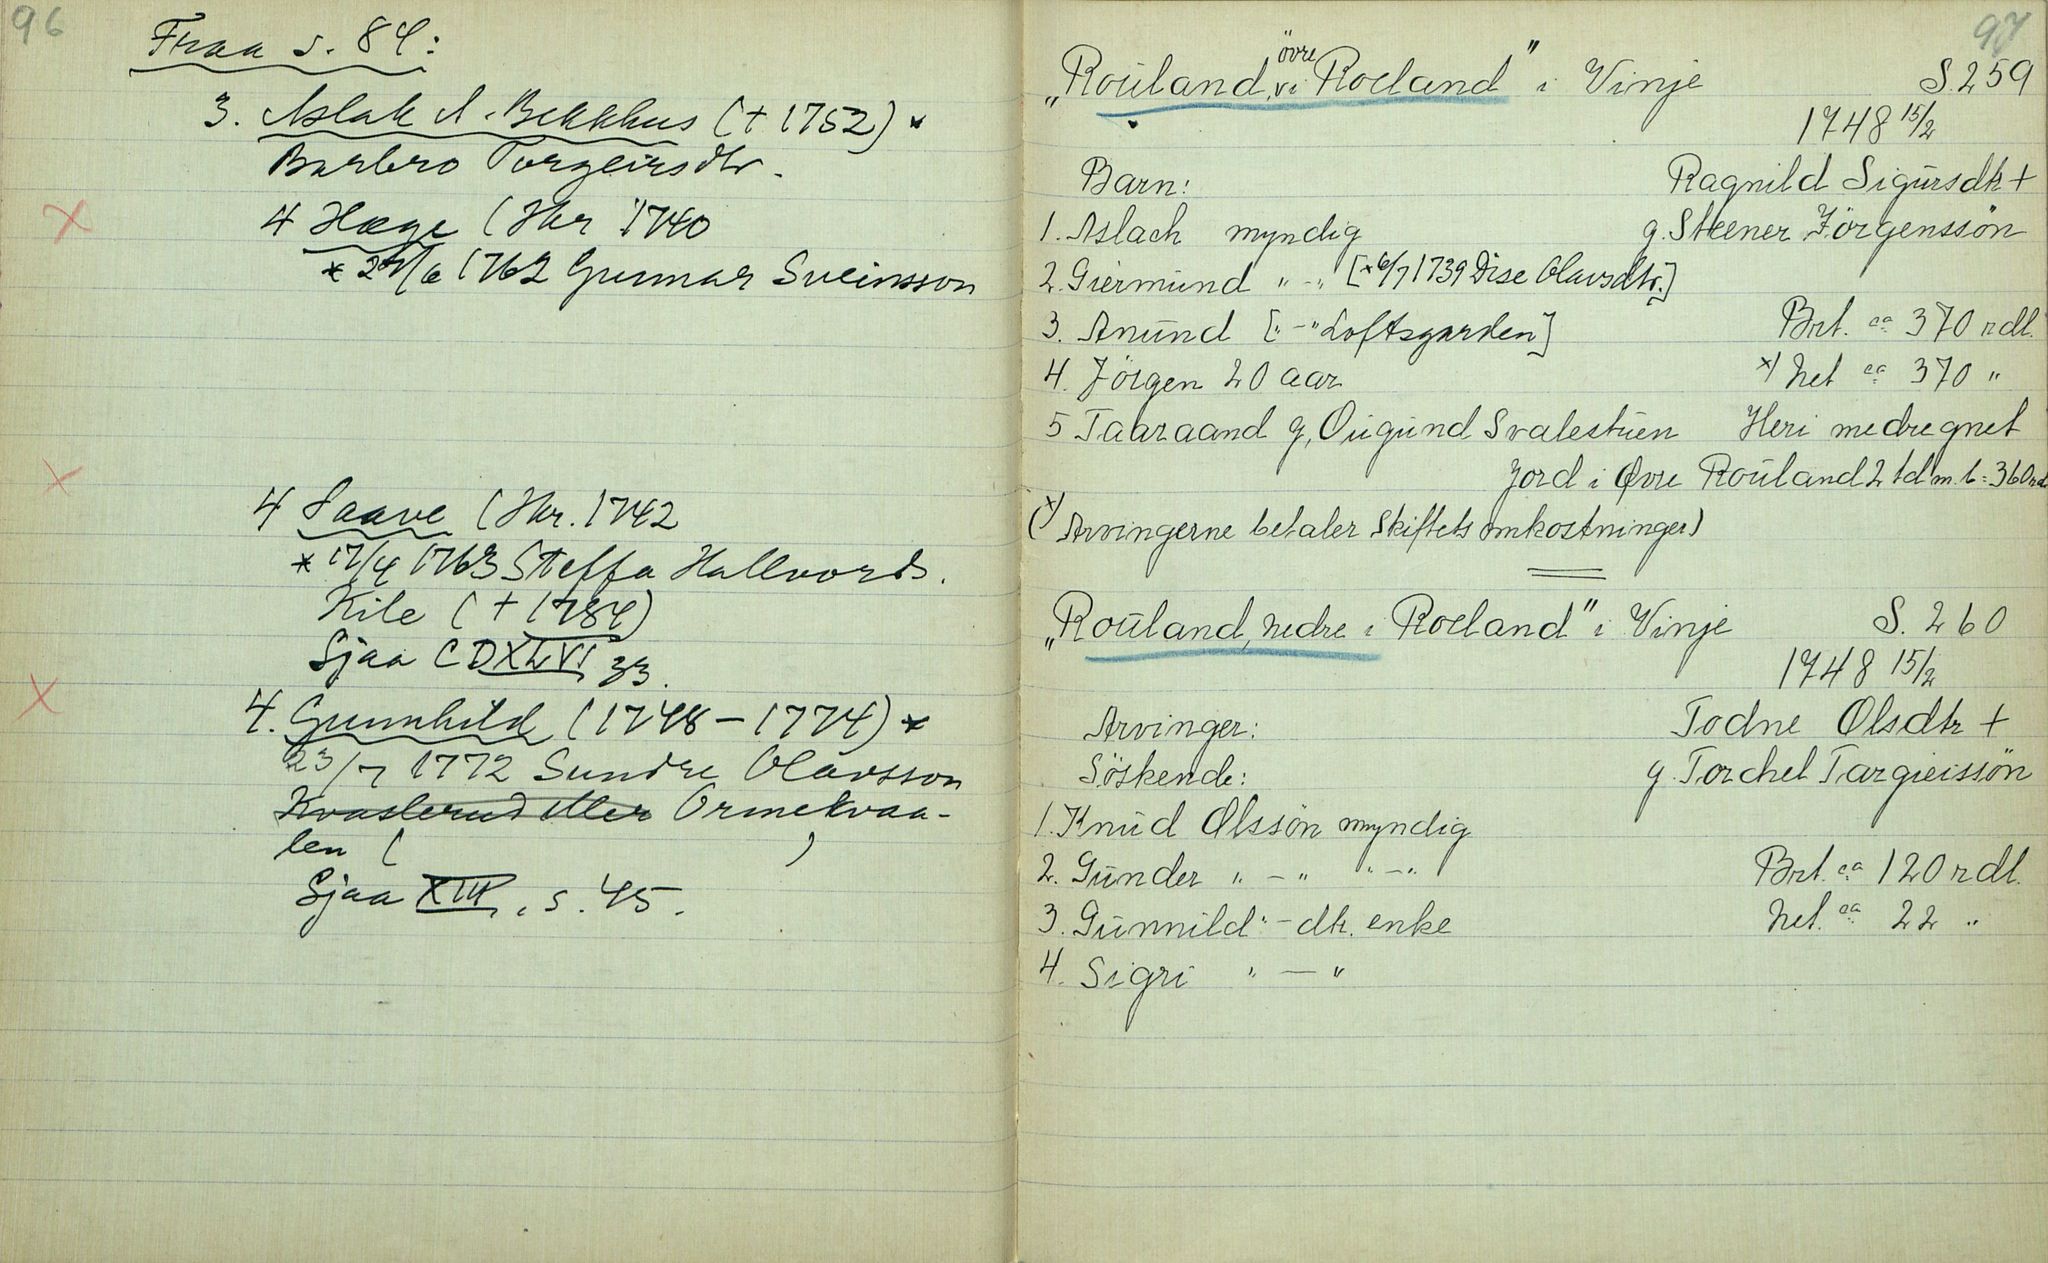 96
Fraa s. 84:
3. Aslak A. Bekkhus (+ 1752) *
Barbro Torgeirsdtr.
4 Hæge (Hkr 1740
* 24/6 1762 Gunnar Sveinsson
4 Saave (Hkr. 1742
* 17/4 1763 Steffa Hallvords.
Kile (+ 1784)
Sjaa CDXLVI 33.
4. Gunnhild (1748 - 1774) *
23/7 1772 Sundre Olavsson
Kvaslerud eller Ormekvaa-
len ( )
Sjaa XIII, s. 45.
97
"Rouland, övre i Roeland" i Vinje S. 259
1748 15/2
Barn: Ragnild Sigursdtr +
1. Aslach myndig g. Steener Jörgenssön
2. Giermund " - " [* 6/7 1739 Dise Olavsdtr.]
3. Anund [" - " Loftsgarden] Brt. ca 370 rdl.
4. Jörgen 20 aar x) Net ca 370 "
5 Taaraand g. Ougund Svalestuen Heri medregnet
Jord i Øvre Rouland 2 td m. b = 360 rdl
(x) Arvingerne betaler skiftets omkostninger)
"Rouland, nedre i Roeland" i Vinje S. 260
1748 15/2
Arvinger: Todne Olsdtr +
Söskende: g. Torchel Targieissön
1. Knud Olssön myndig
2. Gunder " - " " - " Brt. ca 120 rdl.
3. Gunnild " - dtr. enke Net. ca 22 "
4. Sigri " - "